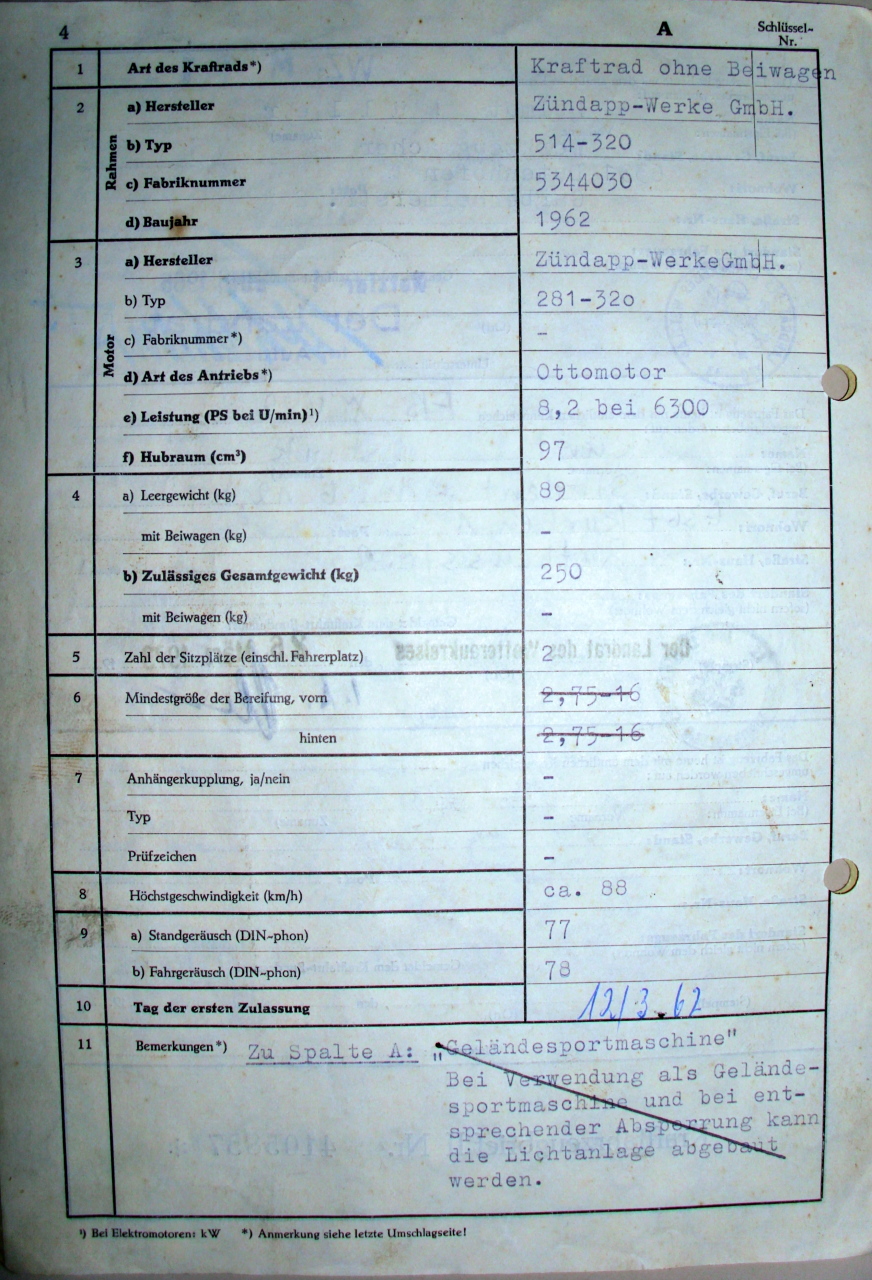 4 A Schlüssel-
Nr.
1 Art des Kraftrads*) Kraftrad ohne Beiwagen
2 a) Hersteller Zündapp-Werke GmbH.
Rahmen
b) Typ 514-320
c) Fabriknummer 5344030
d) Baujahr 1962
3 a) Hersteller Zündapp-WerkeGmbH.
Motor
b) Typ 281-32o
c) Fabriknummer*) -
d) Art des Antriebs*) Ottomotor
e) Leistung (PS bei U/min)¹) 8,2 bei 6300
f) Hubraum (cm³) 97
4 a) Leergewicht (kg) 89
mit Beiwagen (kg) -
b) Zulässiges Gesamtgewicht (kg) 250
mit Beiwagen (kg) -
5 Zahl der Sitzplätze (einschl. Fahrerplatz) 2
6 Mindestgröße der Bereifung, vorn 2,75-16
hinten 2,75-16
7 Anhängerkupplung, ja/nein -
Typ -
Prüfzeichen -
8 Höchstgeschwindigkeit (km/h) ca. 88
9 a) Standgeräusch (DIN-phon) 77
b) Fahrgeräusch (DIN-phon) 78
10 Tag der ersten Zulassung 12/3.62
11 Bemerkungen*) Zu Spalte A: "Geländesportmaschine"
Bei Verwendung als Gelände-
sportmaschine und bei ent-
sprechender Absperrung kann
die Lichtanlage abgebaut
werden.
¹) Bei Elektromotoren: kW *) Anmerkung siehe letzte Umschlagseite!